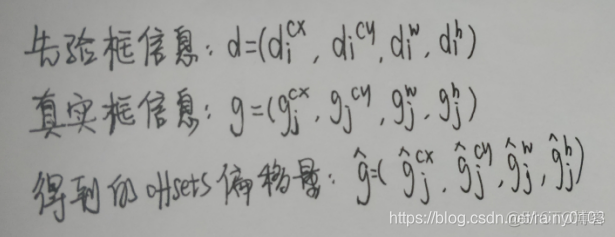 先验框信息: d=(d_i^{cx}, d_i^{cy}, d_i^w, d_i^h)
真实框信息: g=(g_j^{cx}, g_j^{cy}, g_j^w, g_j^h)
得到的offsets偏移量: ĝ=(ĝ_j^{cx}, ĝ_j^{cy}, ĝ_j^w, ĝ_j^h)
https://blog.csdn.net/rainy0103